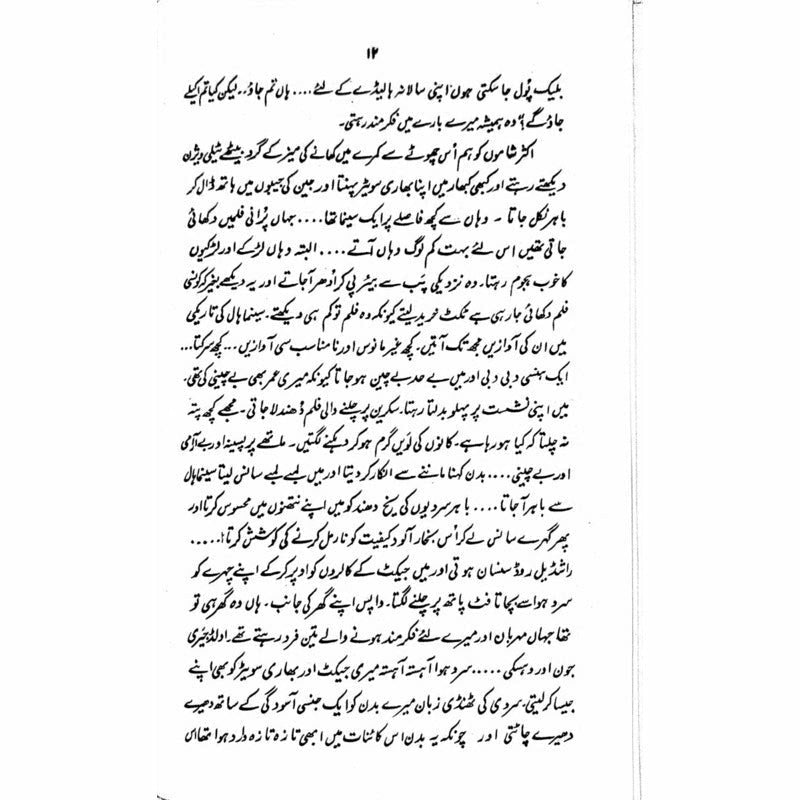 ۱۲
بلیک پُول جا سکتی ہوں اپنی سالانہ ہالیڈے کے لئے.... ہاں تم جاؤ.. لیکن کیا تم اکیلے
جاؤ گے؟ وہ ہمیشہ میرے بارے میں فکرمند رہتی۔
اکثر شاموں کو ہم اُس چھوٹے سے کمرے میں کھانے کی میز کے گرد بیٹھے ٹیلی ویژن
دیکھتے رہتے اور کبھی کبھار میں اپنا بھاری سویٹر پہنتا اور جین کی جیبوں میں ہاتھ ڈال کر
باہر نکل جاتا ۔ وہاں سے کچھ فاصلے پر ایک سینما تھا.... جہاں پُرانی فلمیں دکھائی
جاتی تھیں اس لئے بہت کم لوگ وہاں آتے.... البتہ وہاں لڑکے اور لڑکیوں
کا خوب ہجوم رہتا۔ وہ نزدیکی پَب سے بیئر پی کر اُدھر آجاتے اور یہ دیکھے بغیر کہ کونسی
فلم دکھائی جا رہی ہے ٹکٹ خرید لیتے کیونکہ وہ فلم تو کم ہی دیکھتے۔ سینما ہال کی تاریکی
میں ان کی آوازیں مجھ تک آتیں۔ کچھ غیر مانوس اور نامناسب سی آوازیں... کچھ سرکتا...
ایک ہنسی دبی دبی اور میں بے حد بے چین ہو جاتا کیونکہ میری عمر بھی بے چینی کی تھی۔
میں اپنی نشست پر پہلو بدلتا رہتا۔ سکرین پر چلنے والی فلم دُھندلا جاتی۔ مجھے کچھ پتہ
نہ چلتا کہ کیا ہو رہا ہے۔ کانوں کی لَویں گرم ہو کر دہکنے لگتیں۔ ماتھے پر پسینہ اور بے آرامی
اور بے چینی.... بدن کہنا ماننے سے انکار کر دیتا اور میں لمبے لمبے سانس لیتا سینما ہال
سے باہر آجاتا.... باہر سردیوں کی یخ دھند کو میں اپنے نتھنوں میں محسوس کرتا اور
پھر گہرے سانس لے کر اُس بخار آلود کیفیت کو نارمل کرنے کی کوشش کرتا!.....
راشڈیل روڈ سنسان ہوتی اور میں جیکٹ کے کالروں کو اوپر کر کے اپنے چہرے کو
سرد ہوا سے بچاتا فٹ پاتھ پر چلنے لگتا۔ واپس اپنے گھر کی جانب۔ ہاں وہ گھر ہی تو
تھا جہاں مہربان اور میرے لئے فکر مند ہونے والے تین فرد رہتے تھے۔ اولڈ ہیری
جون اور وہسکی ..... سرد ہوا آہستہ آہستہ میری جیکٹ اور بھاری سویٹر کو بھی اپنے
جیسا کر لیتی۔ سردی کی ٹھنڈی زبان میرے بدن کو ایک جنسی آسودگی کے ساتھ دھیرے
دھیرے چاٹتی اور چونکہ یہ بدن اس کائنات میں ابھی تازہ تازہ وارد ہوا تھا اس